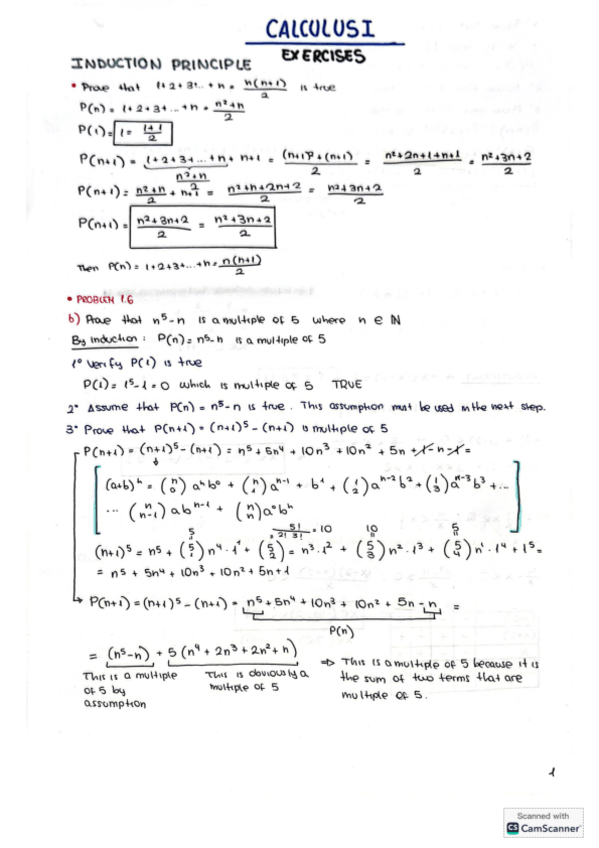 CALCULUS I
EXERCISES
INDUCTION PRINCIPLE
• Prove that 1+2+3+...+n = n(n+1)/2 is true
P(n) = 1+2+3+...+n = n²+n/2
P(1) = 1 = 1+1/2
P(n+1) = 1+2+3+...+n + n+1 = (n+1)²+(n+1)/2 = n²+2n+1+n+1/2 = n²+3n+2/2
n²+n/2
P(n+1) = n²+n/2 + n+1 = n²+n+2n+2/2 = n²+3n+2/2
P(n+1) = n²+3n+2/2 = n²+3n+2/2
Then P(n) = 1+2+3+...+n = n(n+1)/2
• PROBLEM 1.6
b) Prove that n⁵-n is a multiple of 5 where n ∈ ℕ
By induction: P(n) = n⁵-n is a multiple of 5
1º Verify P(1) is true
P(1) = 1⁵-1 = 0 which is multiple of 5 TRUE
2º Assume that P(n) = n⁵-n is true. This assumption must be used in the next step.
3º Prove that P(n+1) = (n+1)⁵-(n+1) is multiple of 5
P(n+1) = (n+1)⁵-(n+1) = n⁵+5n⁴+10n³+10n²+5n+1-n-1 =
(a+b)ⁿ = (n 0) aⁿb⁰ + (n 1) aⁿ⁻¹ + b¹ + (1 2) aⁿ⁻²b² + (1 3) aⁿ⁻³b³ + ...
... (n n-1) abⁿ⁻¹ + (n n) a⁰bⁿ
5 5!/2!3! = 10 10 5
(n+1)⁵ = n⁵ + (5 1) n⁴·1¹ + (5 2) = n³·1² + (5 3) n²·1³ + (5 4) n¹·1⁴ + 1⁵ =
= n⁵+5n⁴+10n³+10n²+5n+1
P(n+1) = (n+1)⁵-(n+1) = n⁵+5n⁴+10n³+10n²+5n-n =
P(n)
= (n⁵-n) + 5(n⁴+2n³+2n²+n) ⇒ This is a multiple of 5 because it is
This is a multiple This is obviously a the sum of two terms that are
of 5 by multiple of 5 multiple of 5.
assumption
1
Scanned with
CS CamScanner